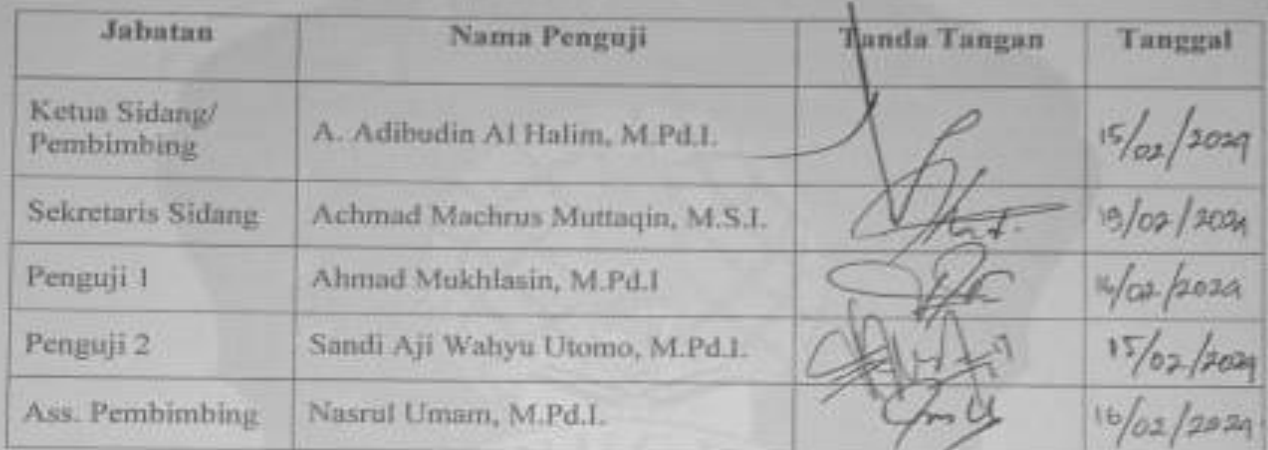 Jabatan Nama Penguji Tanda Tangan Tanggal
Ketua Sidang/
Pembimbing A. Adibudin Al Halim, M.Pd.I. 15/02/2024
Sekretaris Sidang Achmad Machrus Muttaqin, M.S.I. 19/02/2024
Penguji 1 Ahmad Mukhlasin, M.Pd.I 16/02/2024
Penguji 2 Sandi Aji Wahyu Utomo, M.Pd.I. 15/02/2024
Ass. Pembimbing Nasrul Umam, M.Pd.I. 16/02/2024